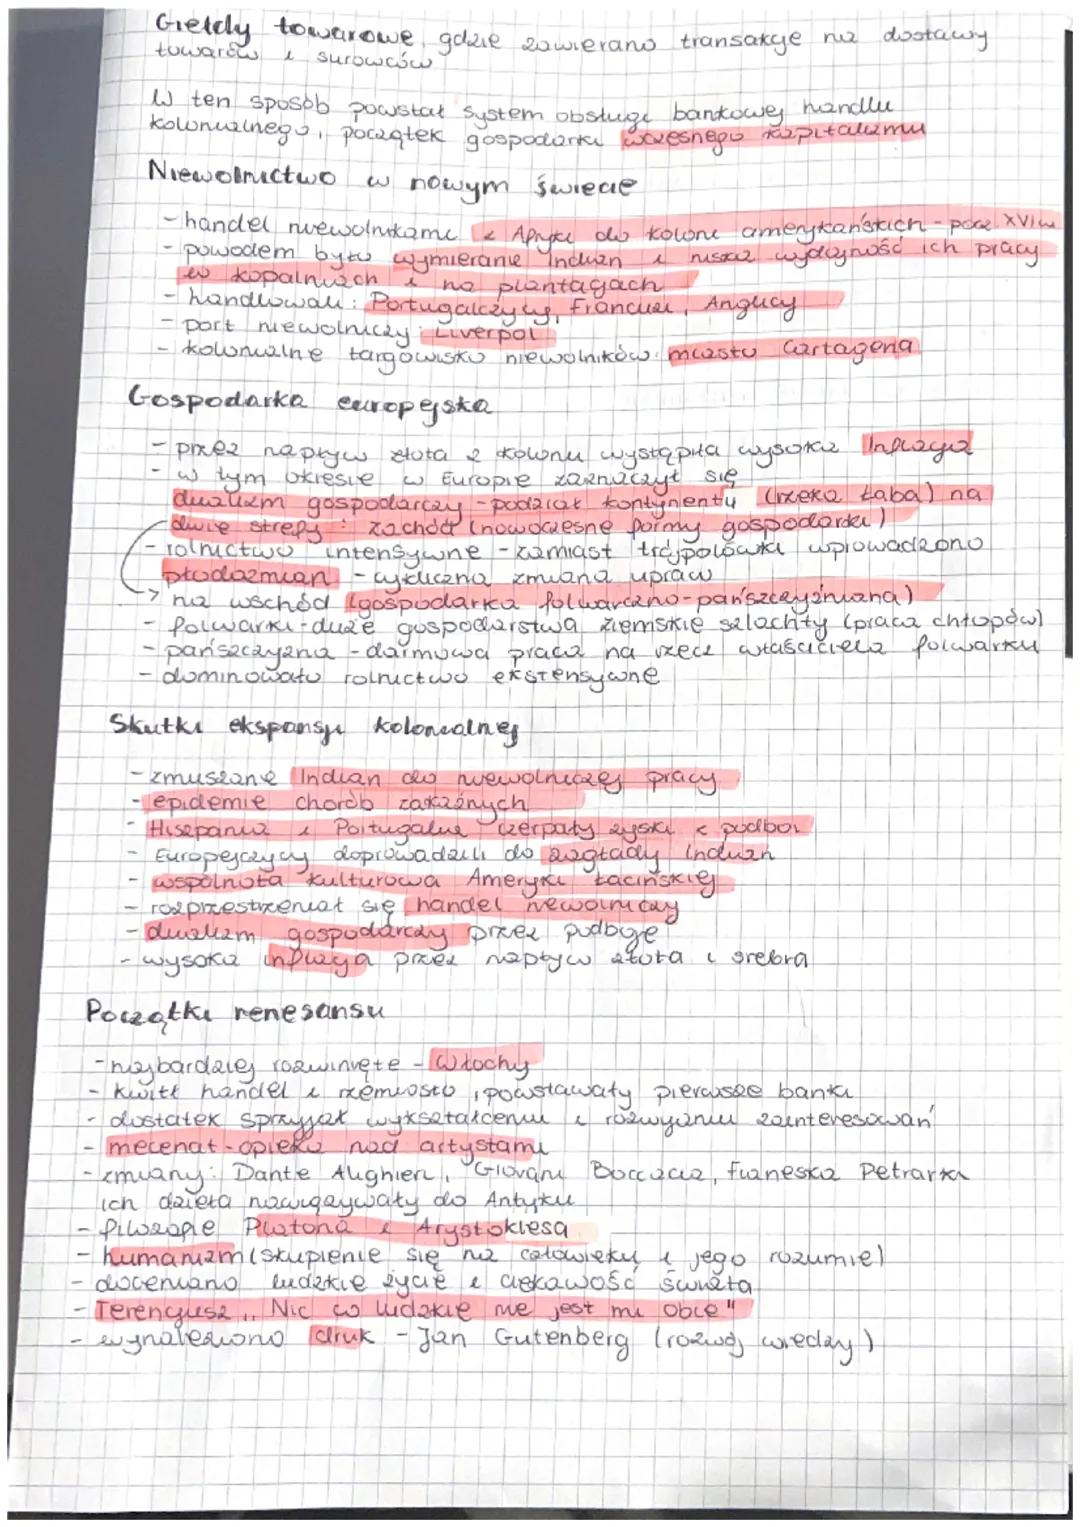 Giełdy towarowe, gdzie zawierano transakcje na dostawy
towarów i surowców
W ten sposób powstał system obsługi bankowej handlu
kolonialnego, początek gospodarki wczesnego kapitalizmu
Niewolnictwo w nowym świecie
- handel niewolnikami z Afryki do kolonii amerykańskich - pocz XVI w
- powodem było wymieranie Indian i niska wydajność ich pracy
w kopalniach i na plantacjach
- handlowali: Portugalczycy, Francuzi, Anglicy
- port niewolniczy: Liverpol
- kolonialne targowisko niewolników: miasto Cartagena
Gospodarka europejska
- przez napływ złota z kolonii wystąpiła wysoka Inflacja
- w tym okresie w Europie zaznaczył się
dualizm gospodarczy - podział kontynentu (rzeka Łaba) na
dwie strefy: zachód (nowoczesne formy gospodarki)
- rolnictwo intensywne - zamiast trójpolówki wprowadzono
płodozmian - cykliczna zmiana upraw
→ na wschód (gospodarka folwarczno-pańszczyźniana)
- folwarki - duże gospodarstwa ziemskie szlachty (praca chłopów)
- pańszczyzna - darmowa praca na rzecz właściciela folwarku
- dominowało rolnictwo ekstensywne
Skutki ekspansji kolonialnej
- zmuszanie Indian do niewolniczej pracy
- epidemie chorób zakaźnych
- Hiszpania i Portugalia czerpały zyski z podboi
- Europejczycy doprowadzili do zagłady Indian
- wspólnota kulturowa Ameryki Łacińskiej
- rozprzestrzeniał się handel niewolniczy
- dualizm gospodarczy przez podboje
- wysoka inflacja przez napływ złota i srebra
Początki renesansu
- najbardziej rozwinięte - Włochy
- kwitł handel i rzemiosło, powstawały pierwsze banki
- dostatek sprzyjał wykształceniu i rozwijaniu zainteresowań
- mecenat - opieka nad artystami
- zmiany: Dante Alighieri, Giovani Boccacia, Franeska Petrarka
ich dzieła nawiązywały do Antyku
- filozofie Platona i Arystoklesa
- humanizm (skupienie się na człowieku i jego rozumie)
- doceniano ludzkie życie i ciekawość świata
- Terencjusz „Nic co ludzkie nie jest mi obce"
- wynaleziono druk - Jan Gutenberg (rozwój wiedzy)